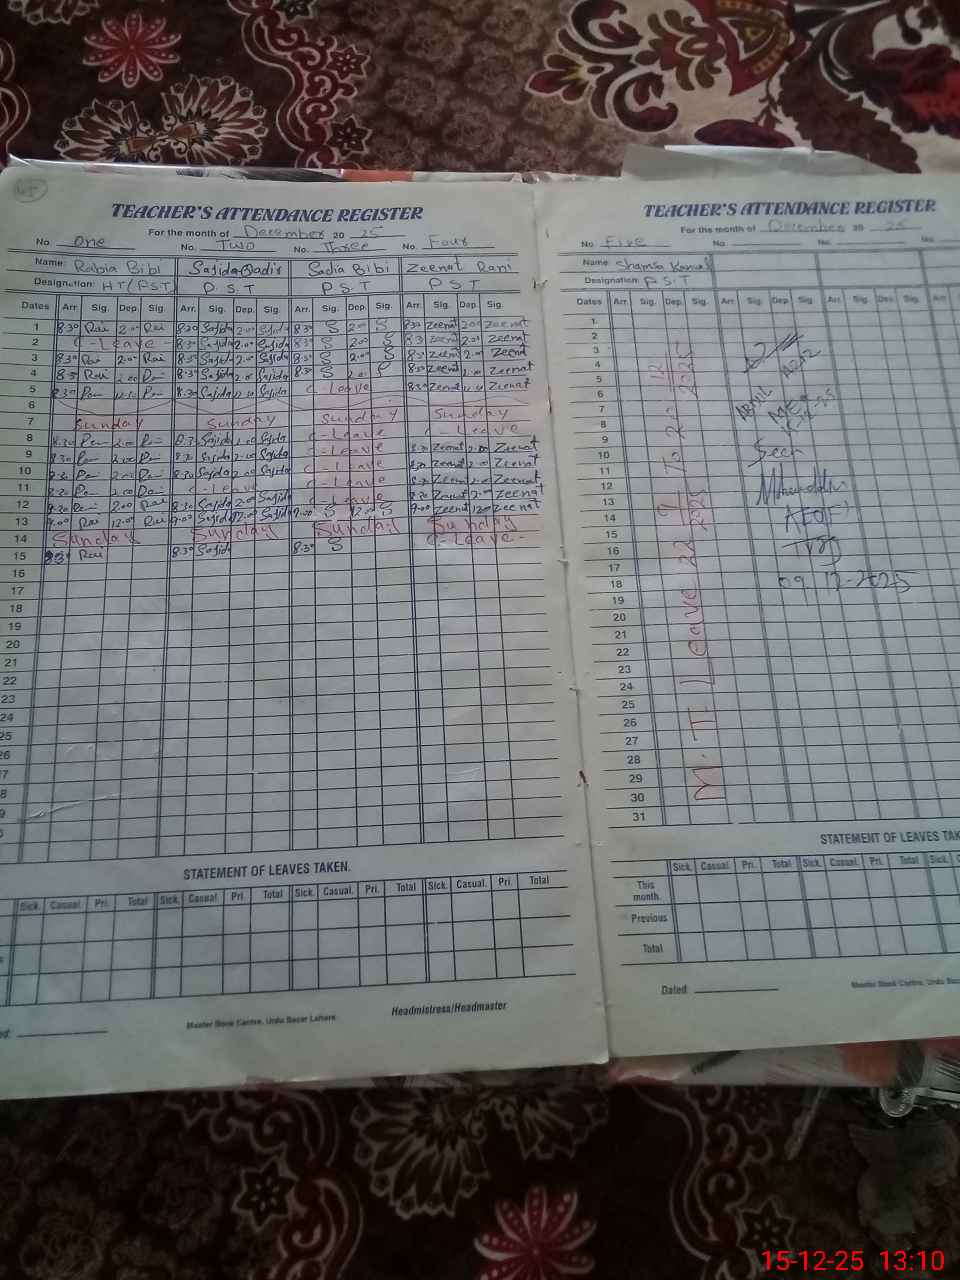 45
TEACHER'S ATTENDANCE REGISTER
For the month of December 20 25
No. One No. Two No. Three No. Four
Name: Rabia Bibi Sajida Qadir Sadia Bibi Zeenat Rani
Designation: HT (P.S.T) P.S.T P.S.T P.S.T
Dates Arr. Sig. Dep. Sig. Arr. Sig. Dep. Sig. Arr. Sig. Dep. Sig. Arr. Sig. Dep. Sig.
1 8.30 Rai 2.00 Rai 8.30 Sajida 2.00 Sajida 8.30 S 2.00 S 8.30 Zeenat 2.00 Zeenat
2 C-Leave 8.30 Sajida 2.00 Sajida 8.30 S 2.00 S 8.30 Zeenat 2.00 Zeenat
3 8.30 Rai 2.00 Rai 8.30 Sajida 2.00 Sajida 8.30 S 2.00 S 8.30 Zeenat 2.00 Zeenat
4 8.30 Rai 2.00 Rai 8.30 Sajida 2.00 Sajida 8.30 S 2.00 8.30 Zeenat 2.00 Zeenat
5 8.30 Rai Rai 8.30 Sajida Sajida C-Leave 8.30 Zeenat Zeenat
6
7 Sunday Sunday Sunday Sunday
8 8.30 Rai 2.00 Rai 8.30 Sajida 2.00 Sajida C-Leave C-Leave
9 8.30 Rai 2.00 Rai 8.30 Sajida 2.00 Sajida C-Leave 8.30 Zeenat 2.00 Zeenat
10 8.30 Rai 2.00 Rai 8.30 Sajida 2.00 Sajida C-Leave 8.30 Zeenat 2.00 Zeenat
11 8.30 Rai 2.00 Rai C-Leave C-Leave 8.30 Zeenat 2.00 Zeenat
12 8.30 Rai 2.00 Rai 8.30 Sajida 2.00 Sajida C-Leave 8.30 Zeenat 2.00 Zeenat
13 9.00 Rai 12.00 Rai 9.00 Sajida 12.00 Sajida 9.00 S 12.00 S 9.00 Zeenat 12.00 Zeenat
14 Sunday Sunday Sunday Sunday
15 8.30 Rai 8.30 Sajida 8.30 S C-Leave
16
17
18
19
20
21
22
23
24
25
26
27
28
29
STATEMENT OF LEAVES TAKEN.
Sick. Casual. Pri. Total Sick. Casual. Pri. Total Sick. Casual. Pri. Total Sick. Casual. Pri. Total
Master Book Centre, Urdu Bazar Lahore
Headmistress/Headmaster
TEACHER'S ATTENDANCE REGISTER
For the month of December 20 25
No. Five No. No. No.
Name: Shamsa Kamal
Designation: P.S.T
Dates Arr. Sig. Dep. Sig. Arr. Sig. Dep Sig. Arr. Sig. Dep. Sig. Arr
1
2
3
4
5
6
7
8
9
10
11
12
13
14
15
16
17
18
19
20
21
22
23
24
25
26
27
28
29
30
31
Seen
AEO(F)
09-12-2025
STATEMENT OF LEAVES TAK
Sick. Casual. Pri. Total Sick. Casual. Pri. Total Sick.
This month.
Previous
Total
Dated:
Master Book Centre, Urdu Baz
15-12-25 13:10